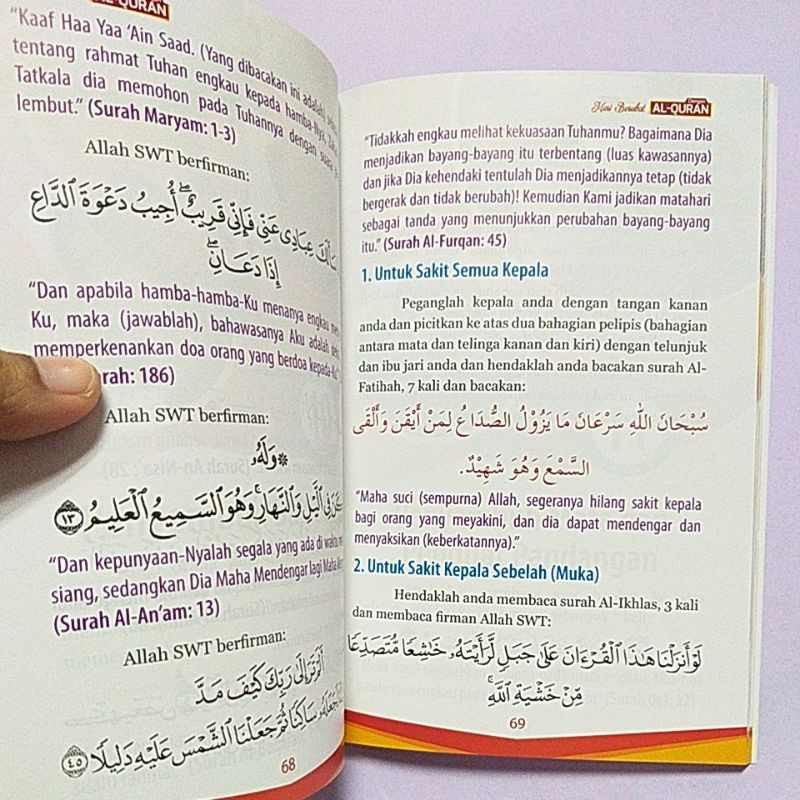 AL-QURAN
“Kaaf Haa Yaa ‘Ain Saad. (Yang dibacakan ini adalah)
tentang rahmat Tuhan engkau kepada hamba-Nya,
Tatkala dia memohon pada Tuhannya dengan suara
lembut.” (Surah Maryam: 1-3)
Allah SWT berfirman:
عِبَادِى عَنِّى فَإِنِّى قَرِيبٌ ۖ أُجِيبُ دَعْوَةَ ٱلدَّاعِ
إِذَا دَعَانِ ۖ
“Dan apabila hamba-hamba-Ku menanya engkau
Ku, maka (jawablah), bahawasanya Aku adalah
memperkenankan doa orang yang berdoa kepada-Ku.”
rah: 186)
Allah SWT berfirman:
۞ وَلَهُۥ
فِى ٱلَّيْلِ وَٱلنَّهَارِ ۚ وَهُوَ ٱلسَّمِيعُ ٱلْعَلِيمُ ١٣
“Dan kepunyaan-Nyalah segala yang ada di waktu
siang, sedangkan Dia Maha Mendengar lagi Maha
(Surah Al-An’am: 13)
Allah SWT berfirman:
أَلَمْ تَرَ إِلَىٰ رَبِّكَ كَيْفَ مَدَّ
سَاكِنًا ثُمَّ جَعَلْنَا ٱلشَّمْسَ عَلَيْهِ دَلِيلًا ٤٥
68
Mari Berubat Dengan AL-QURAN
“Tidakkah engkau melihat kekuasaan Tuhanmu? Bagaimana Dia
menjadikan bayang-bayang itu terbentang (luas kawasannya)
dan jika Dia kehendaki tentulah Dia menjadikannya tetap (tidak
bergerak dan tidak berubah)! Kemudian Kami jadikan matahari
sebagai tanda yang menunjukkan perubahan bayang-bayang
itu.” (Surah Al-Furqan: 45)
1. Untuk Sakit Semua Kepala
Peganglah kepala anda dengan tangan kanan
anda dan picitkan ke atas dua bahagian pelipis (bahagian
antara mata dan telinga kanan dan kiri) dengan telunjuk
dan ibu jari anda dan hendaklah anda bacakan surah Al-
Fatihah, 7 kali dan bacakan:
سُبْحَانَ اللهِ سَرْعَانَ مَا يَزُوْلُ الصُّدَاعُ لِمَنْ أَيْقَنَ وَأَلْقَى
السَّمْعَ وَهُوَ شَهِيْدٌ.
“Maha suci (sempurna) Allah, segeranya hilang sakit kepala
bagi orang yang meyakini, dan dia dapat mendengar dan
menyaksikan (keberkatannya).”
2. Untuk Sakit Kepala Sebelah (Muka)
Hendaklah anda membaca surah Al-Ikhlas, 3 kali
dan membaca firman Allah SWT:
لَوْ أَنزَلْنَا هَٰذَا ٱلْقُرْءَانَ عَلَىٰ جَبَلٍ لَّرَأَيْتَهُۥ خَٰشِعًا مُّتَصَدِّعًا
مِّنْ خَشْيَةِ ٱللَّهِ ۚ
69